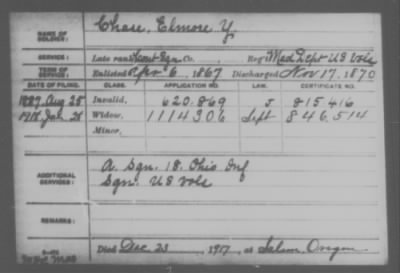 NAME OF SOLDIER: Chase, Elmore Y.
SERVICE: Late rank Asst Sgn. Co. Reg't Med Dept US Vols
TERM OF SERVICE: Enlisted Apr 6, 1867 Discharged Nov 17, 1870
DATE OF FILING. CLASS. APPLICATION NO. LAW. CERTIFICATE NO.
1887, Aug 25 Invalid, 620.869 J 815416
1918, Jan 28 Widow, 1114306 Sept 846,514
Minor,
ADDITIONAL SERVICES: A. Sgn. 18. Ohio Inf
Sgn. US Vols
REMARKS:
Died Dec 23, 1917, at Salem, Oregon